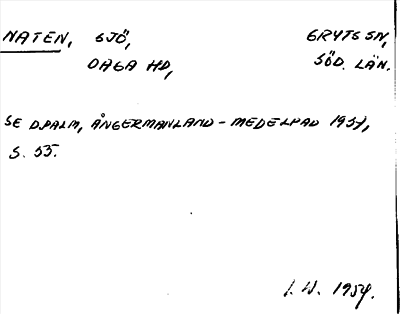 NATEN, SJÖ, GRYTS SN,
DAGA HD, SÖD. LÄN.
SE D.PALM, ÅNGERMANLAND - MEDELPAD 1954,
S. 55.
I. W. 1954.